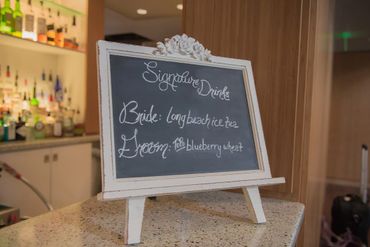 Signature Drinks
Bride: Long beach ice tea
Groom: blueberry wheat